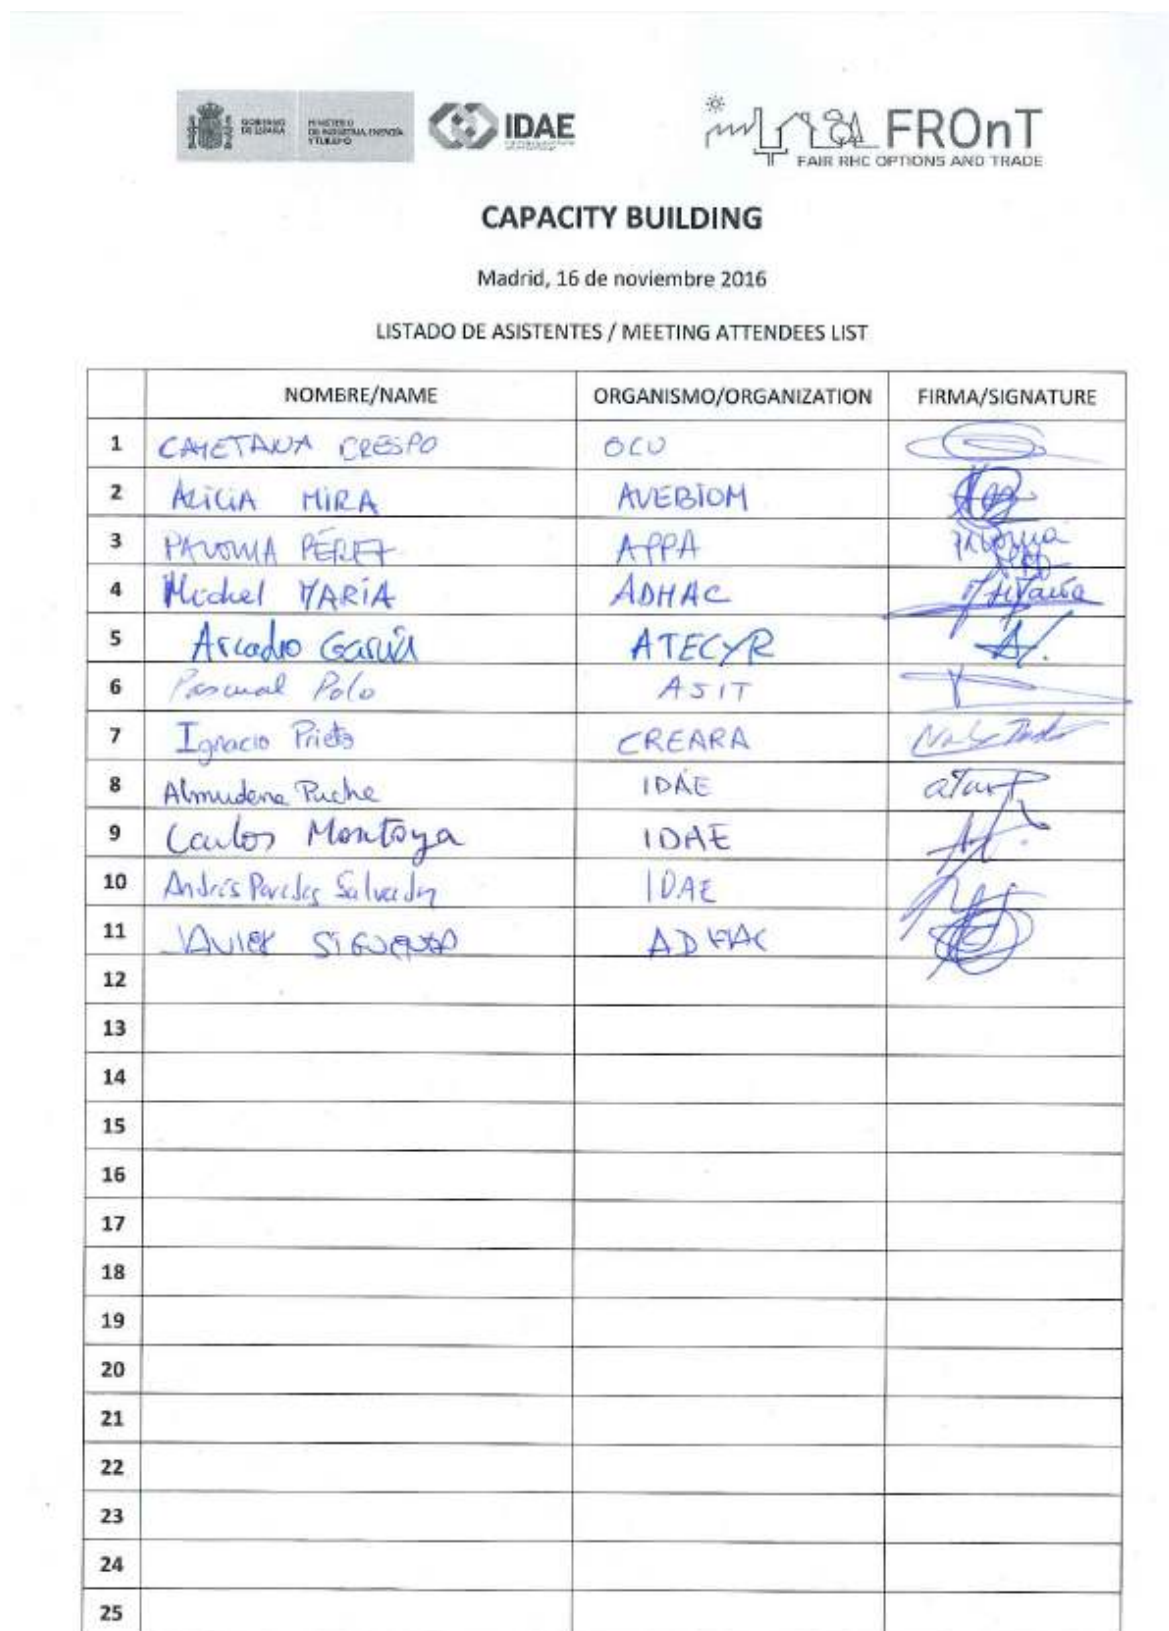 GOBIERNO DE ESPAÑA
MINISTERIO DE INDUSTRIA, ENERGÍA Y TURISMO
IDAE
FROnT
FAIR RHC OPTIONS AND TRADE
CAPACITY BUILDING
Madrid, 16 de noviembre 2016
LISTADO DE ASISTENTES / MEETING ATTENDEES LIST
NOMBRE/NAME ORGANISMO/ORGANIZATION FIRMA/SIGNATURE
1 CAYETANA CRESPO OCU
2 ALICIA MIRA AVEBIOM
3 PALOMA PÉREZ APPA Paloma
4 Michel MARÍA ADHAC
5 Arcadio García ATECYR
6 Pascual Polo ASIT
7 Ignacio Prieto CREARA
8 Almudena Puche IDAE
9 Carlos Montoya IDAE
10 Andrés Paredes Salvador IDAE
11 JAVIER SIGUENZA ADHAC
12
13
14
15
16
17
18
19
20
21
22
23
24
25